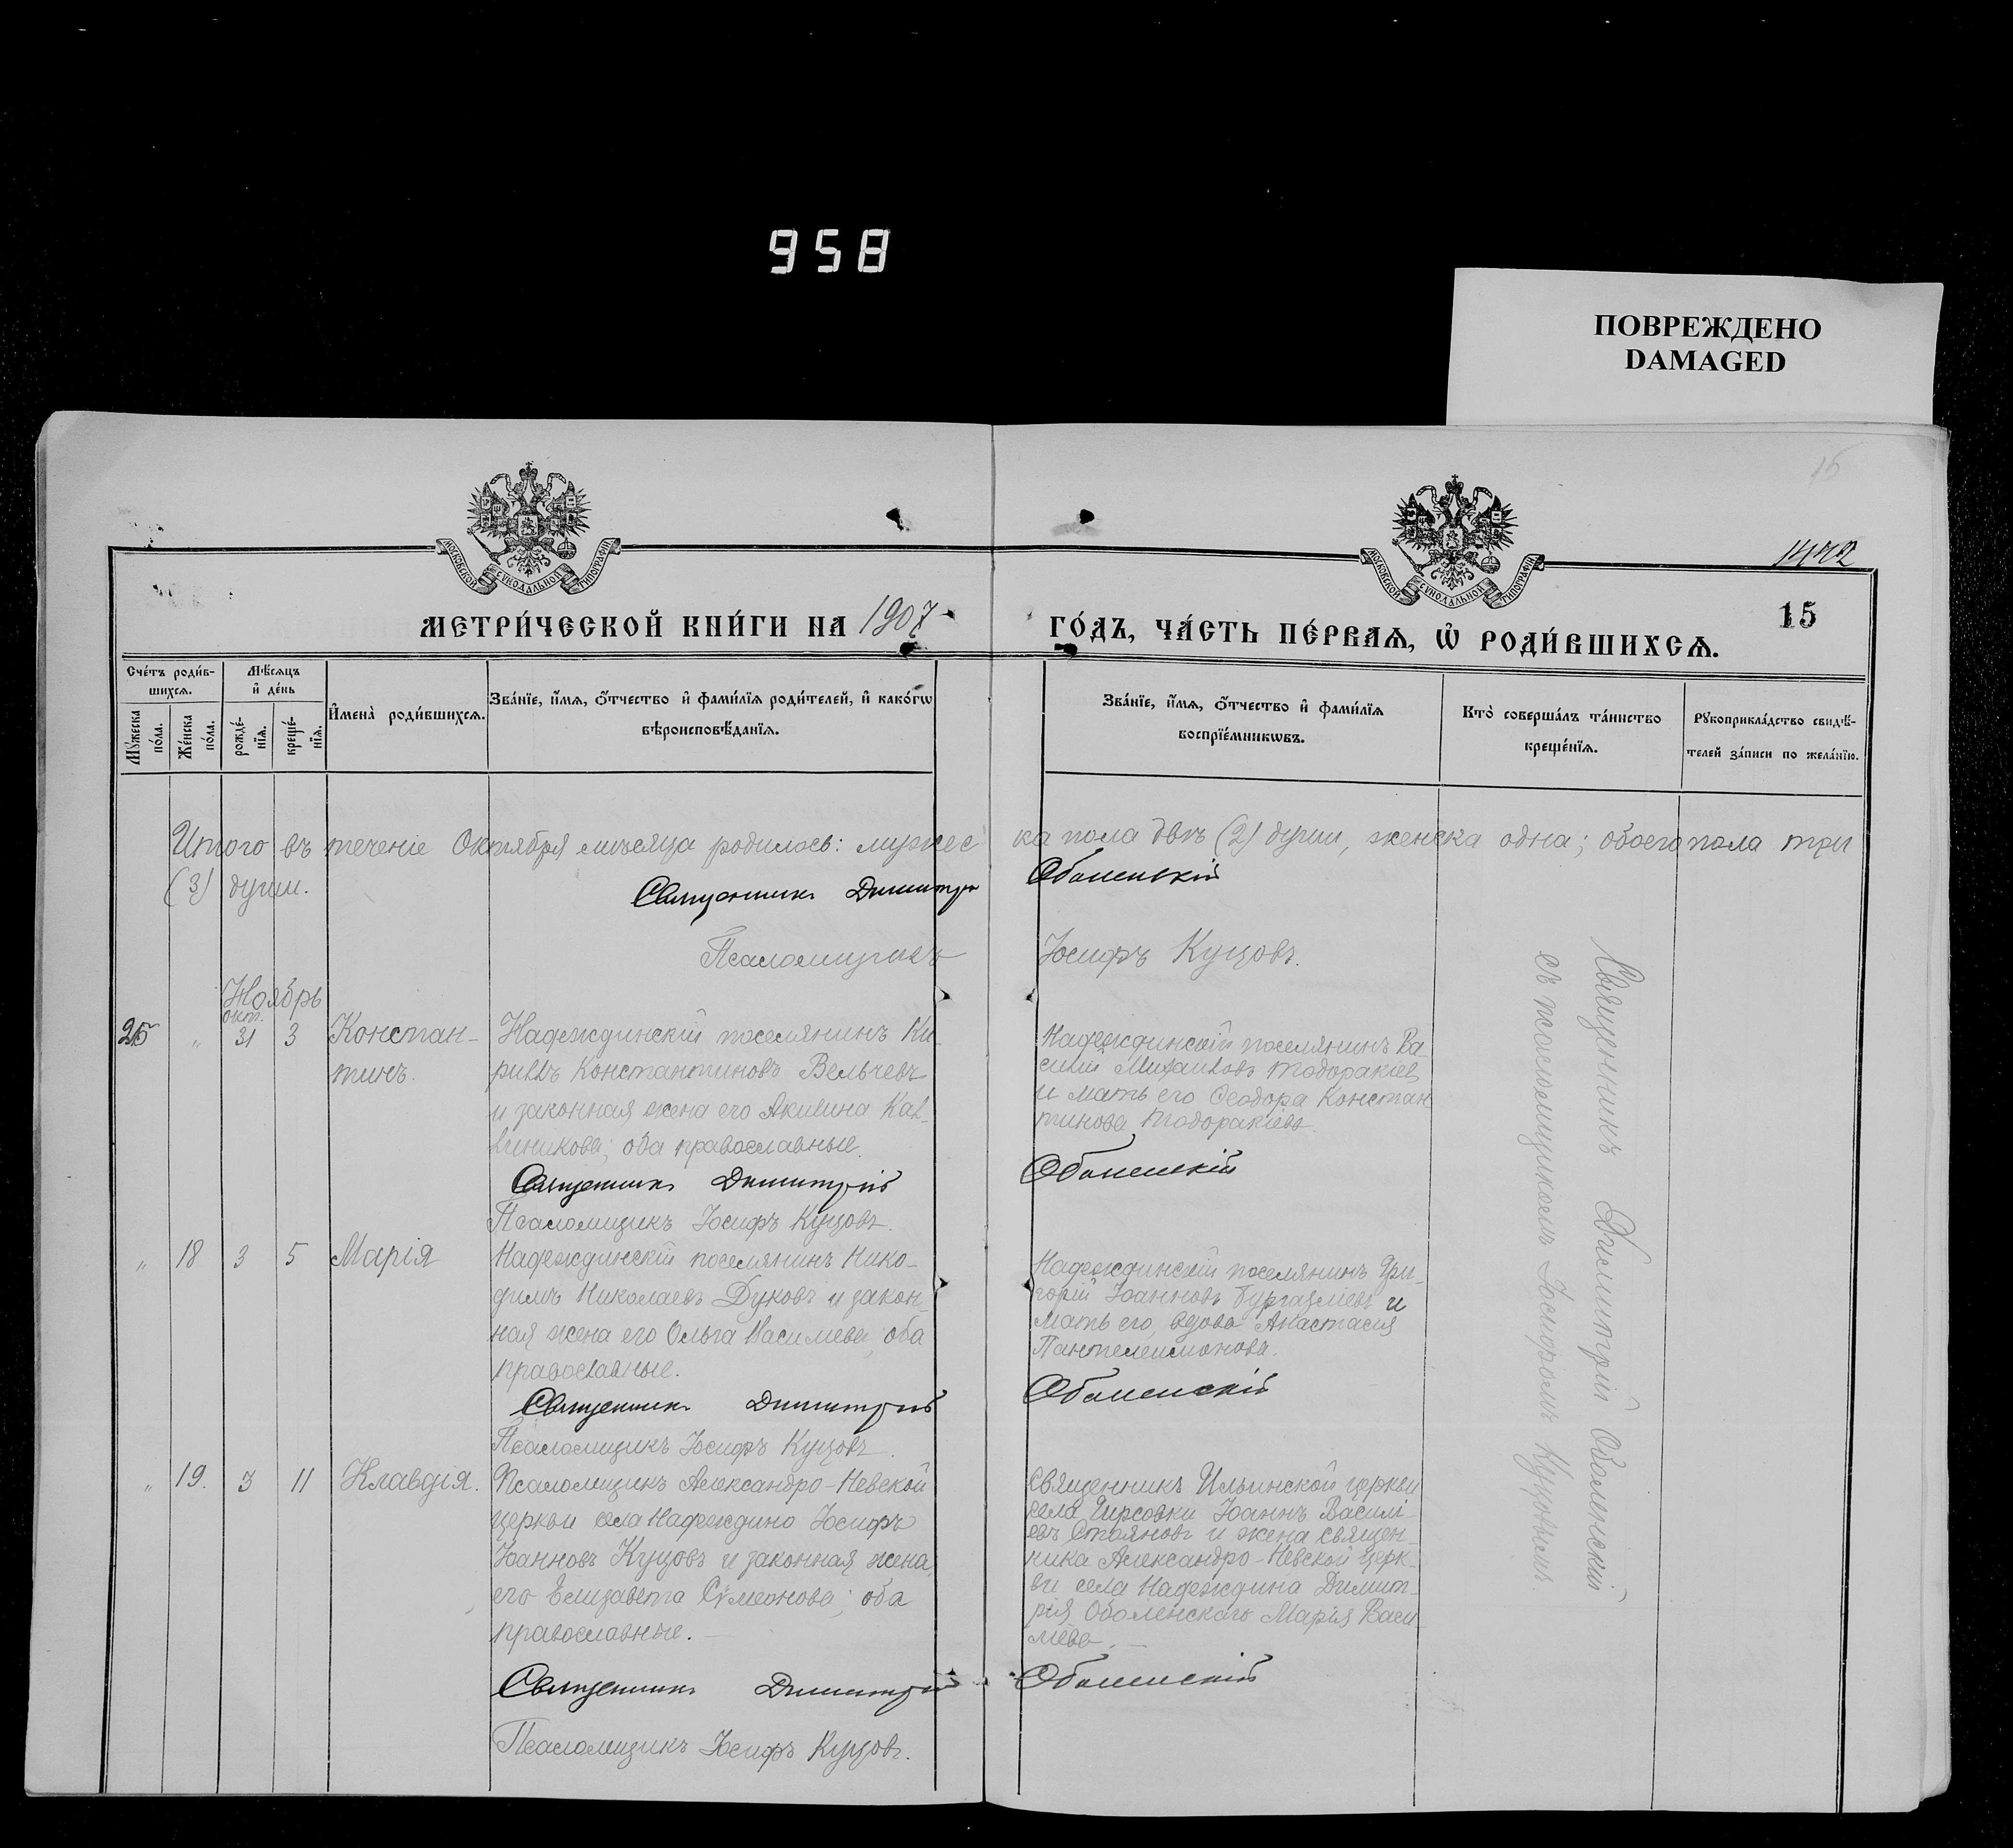 958
ПОВРЕЖДЕНО
DAMAGED
15
1472
МОСКОВСКОЙ СѴНОДАЛЬНОЙ ТИПОГРАФІИ
МОСКОВСКОЙ СѴНОДАЛЬНОЙ ТИПОГРАФІИ
МЕТРИ́ЧЕСКОЙ КНИ́ГИ НА 1907
ГО́ДЪ, ЧА́СТЬ ПЕ́РВАѦ, Ѡ҆ РОДИ́ВШИХСѦ.
15
Сче́тъ роди́в-
шихсѧ.
Мѣ́сѧцъ
и҆ де́нь
Мꙋ́жеска
по́ла.
Же́нска
по́ла.
рожде́-
нїѧ.
креще́-
нїѧ.
И҆мена̀ роди́вшихсѧ.
Зва́нїе, и҆́мѧ, ѻ҆́тчество и҆ фами́лїѧ роди́телей, и҆ како́гѡ
вѣроисповѣ́данїѧ.
Зва́нїе, и҆́мѧ, ѻ҆́тчество и҆ фами́лїѧ
воспрїе́мникѡвъ.
Кто̀ соверша́лъ та́инство
креще́нїѧ.
Рꙋкоприкла́дство свидѣ́-
телей за́писи по жела́нїю.
Итого въ теченіе Октября мѣсяца родилось: мужес
ка пола двѣ (2) души, женска одна; обоего пола три
(3) души.
Священникъ Димитрій Оболенскій
Псаломщикъ Іосифъ Куцовъ.
Ноябрь
окт.
25 " 31 3 Констан-
тинъ.
Надеждинскій поселянинъ Ки-
риллъ Константиновъ Вельчевъ
и законная жена его Акилина Кал-
вченикова; оба православные.
Священникъ Димитрій
Псаломщикъ Іосифъ Куцовъ.
Надеждинскій поселянинъ Ва-
силій Михаиловъ Тодоракіевъ
и мать его Ѳеодора Констан
тинова Тодоракіева.
Оболенскій
" 18 3 5 Марія
Надеждинскій поселянинъ Нико-
димъ Николаевъ Дуковъ и закон-
ная жена его Ольга Васильева; оба
православные.
Священникъ Димитрій
Псаломщикъ Іосифъ Куцовъ.
Надеждинскій поселянинъ Гри-
горій Іоанновъ Бургазліевъ и
мать его, вдова Анастасія
Пантелеимонова.
Оболенскій
" 19. 3 11 Клавдія.
Псаломщикъ Александро-Невской
церкви села Надеждино Іосифъ
Іоанновъ Куцовъ и законная жена
его Елизавета Сѵмеонова; оба
православные. —
Священникъ Димитрій
Псаломщикъ Іосифъ Куцовъ.
Священникъ Ильинской церкви
села Гирсовки Іоаннъ Василі-
евъ Стояновъ и жена священ-
ника Александро-Невской церк-
ви села Надеждина Димит-
рія Оболенскаго Марія Васи
льева. —
Оболенскій
Священникъ Димитрій Оболенскій
съ псаломщикомъ Іосифомъ Куцовымъ.